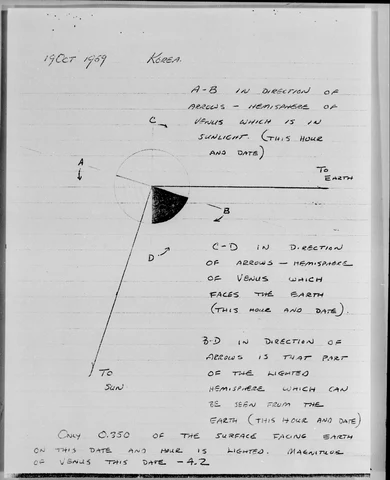 19 OCT 1959 KOREA.
A-B IN DIRECTION OF
ARROWS - HEMISPHERE OF
VENUS WHICH IS IN
SUNLIGHT. (THIS HOUR
AND DATE)
C
A
TO
EARTH
B
D
C-D IN DIRECTION
OF ARROWS - HEMISPHERE
OF VENUS WHICH
FACES THE EARTH
(THIS HOUR AND DATE).
B-D IN DIRECTION OF
ARROWS IS THAT PART
OF THE LIGHTED
HEMISPHERE WHICH CAN
BE SEEN FROM THE
EARTH (THIS HOUR AND DATE)
TO
SUN
ONLY 0.350 OF THE SURFACE FACING EARTH
ON THIS DATE AND HOUR IS LIGHTED. MAGNITUDE
OF VENUS THIS DATE -4.2